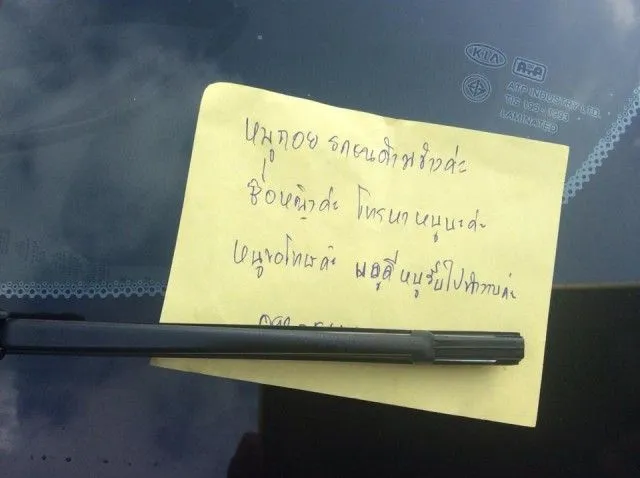 KIA
ATP
ATP INDUSTRY LTD.
TIS 196 - 1993
LAMINATED
หนูถอย รถยนต์ามข้างค่ะ
ชื่อหญิงค่ะ โทรหา หนูนะค่ะ
หนูขอโทษค่ะ พอดี หนูรีบไปทำงานค่ะ